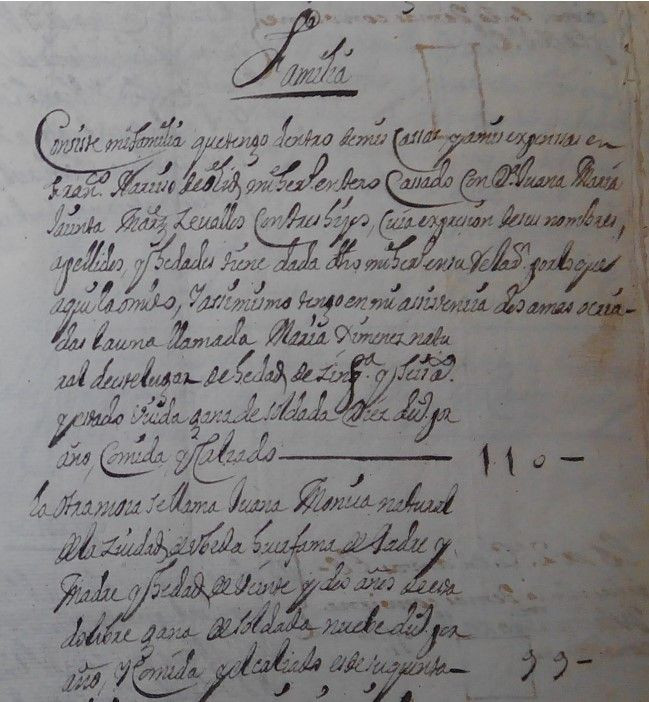 Familia
Consiste mi familia que tengo dentro de mis Cassas y a mis expensas en
Fran.co de mi her.no entero Cassado con D.a Juana Maria
Mrz Zevallos Con tres hijos, Cuia expresion de sus nombres,
apellidos, y hedades tiene dada dho mi her.no en su Relaz.n por lo que
aqui la omito, Y assimismo tengo en mi assistencia dos amas o cria-
das la una llamada Maria Ximenez natu
ral de este lugar de hedad de y
y estado Viuda gana de soldada Diez duc.s por
año, Comida y Calzado — 110-
la otra moza se llama Juana Monica natural
de la Ziudad de Vbeda huerfana de Padre y
Madre y hedad de Veinte y dos años de esta
do libre gana de soldada nuebe duc.s por
año, y Comida y el calzado es de su quenta- 99-